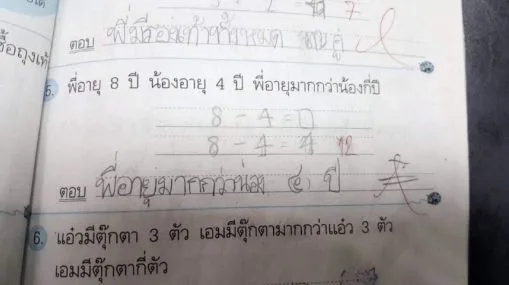 ซื้อถุงเท้
ตอบ พี่มีรองเท้าทั้งหมด คู่
5. พี่อายุ 8 ปี น้องอายุ 4 ปี พี่อายุมากกว่าน้องกี่ปี
8 - 4 = □
8 - 4 = 4 12
ตอบ พี่อายุมากกว่าน้อง ๔ ปี
6. แอ๋วมีตุ๊กตา 3 ตัว เอมมีตุ๊กตามากกว่าแอ๋ว 3 ตัว
เอมมีตุ๊กตากี่ตัว